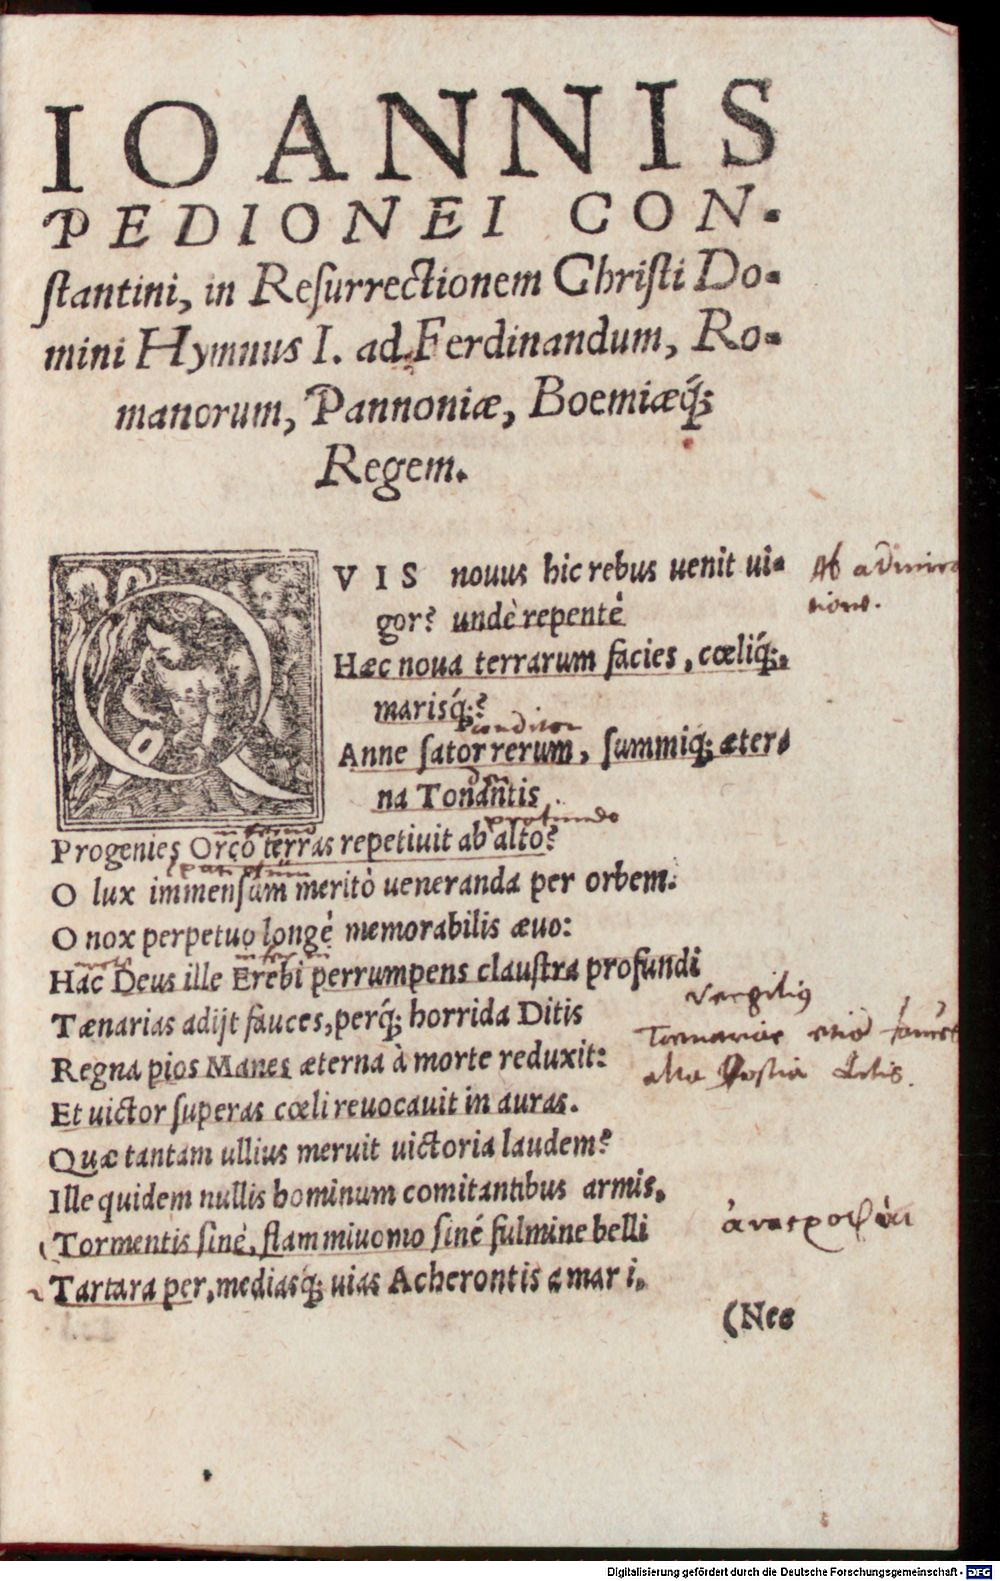 IOANNIS
PEDIONEI CON-
ſtantini, in Reſurrectionem Chriſti Do-
mini Hymnus I. ad Ferdinandum, Ro-
manorum, Pannoniæ, Boemiæq́;
Regem.
QVIS nouus hic rebus uenit ui-
gor? undè repentè
Hæc noua terrarum facies, cœliq́;,
marisq́;?
conditor
Anne ſator rerum, ſummiq́; æter-
na Tonantis
profundo
Progenies Orco terras repetiuit ab alto?
O lux immenſum meritò ueneranda per orbem:
O nox perpetuo longè memorabilis æuo:
Hac Deus ille Erebi perrumpens clauſtra profundi
Tænarias adijt fauces, perq́; horrida Ditis
Regna pios Manes æterna à morte reduxit:
Et uictor ſuperas cœli reuocauit in auras.
Quæ tantam ullius meruit uictoria laudem?
Ille quidem nullis hominum comitantibus armis,
Tormentis sinè, flammiuomo ſinè fulmine belli
Tartara per, mediasq́; uias Acherontis amari,
(Nec
Ab admira
tione.
Vergilius
Taenarias etiam fauces
alta Hostia Ditis.
Digitalisierung gefördert durch die Deutsche Forschungsgemeinschaft - DFG